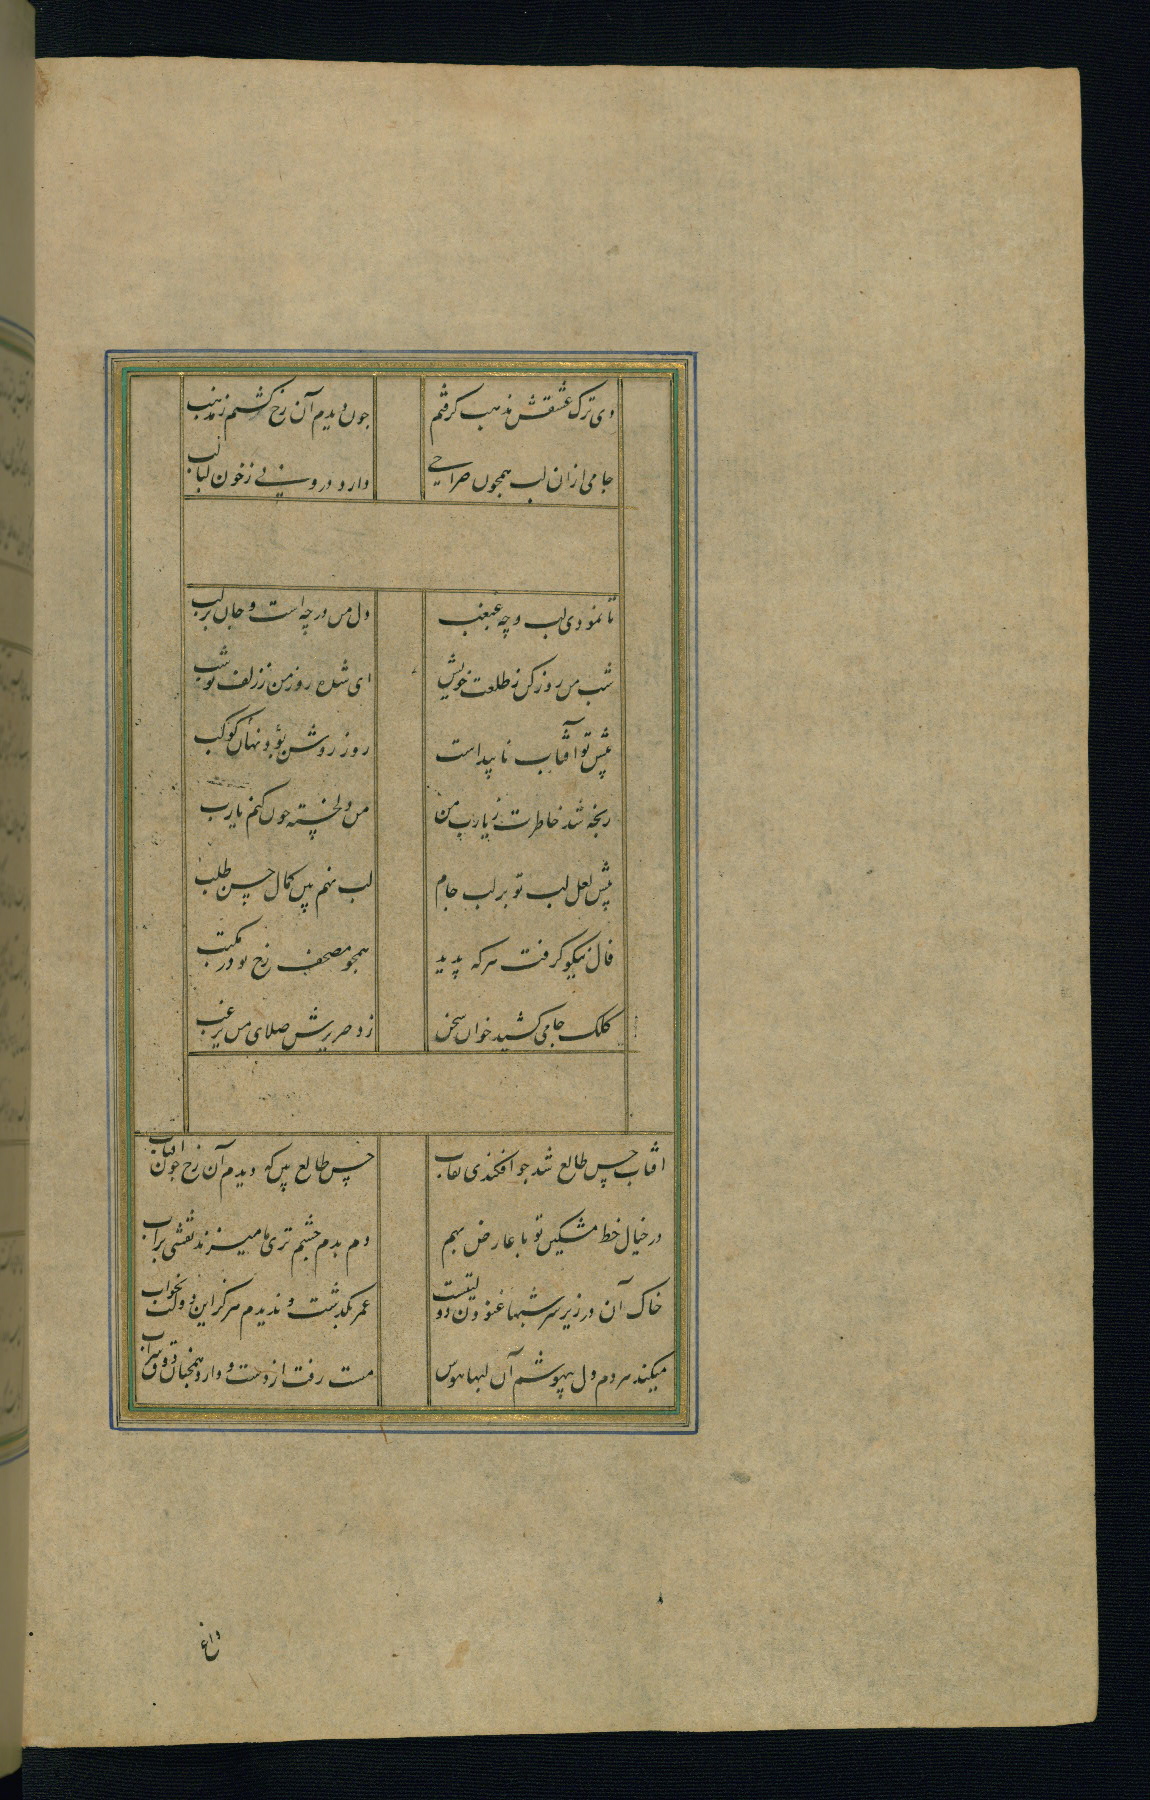 دی ترک عشقش مذهب گرفتم چون دیدم آن رخ گشتم ز مذهب
جامی ازان لب همچون صراحی دارد درونی ز خون لبالب
تا نمودی لب و چه غبغب دل من در چه است و جان بر لب
شب من روز کن ز طلعت خویش ای شده روز من ز زلف تو شب
پیش تو آفتاب ناپیداست روز روشن بود نهان کوکب
رنجه شد خاطرت ز یارب من من دلخسته چون کنم یارب
پیش لعل لب تو بر لب جام لب نهم پس کمال حسن طلب
فال نیکو گرفت هر که بدید همچو مصحف رخ تو در مکتب
کلک جامی کشید خوان سخن زد صریرش صلای من یرغب
آفتاب حسن طالع شد چو افکندی نقاب حسن طالع بین که دیدم آن رخ چون آفتاب
در خیال خط مشکین تو با عارض بهم دم بدم چشم تر ما میزند نقشی بر آب
خاک آن در زیر سر شبها غنودن دولتیست عمر بگذشت و ندیدم هرگز این دولت بخواب
میکند هر دم دل بیهوشم آن لبها هوس مست رفت از دست و دارد همچنان ذوق شراب
داغ